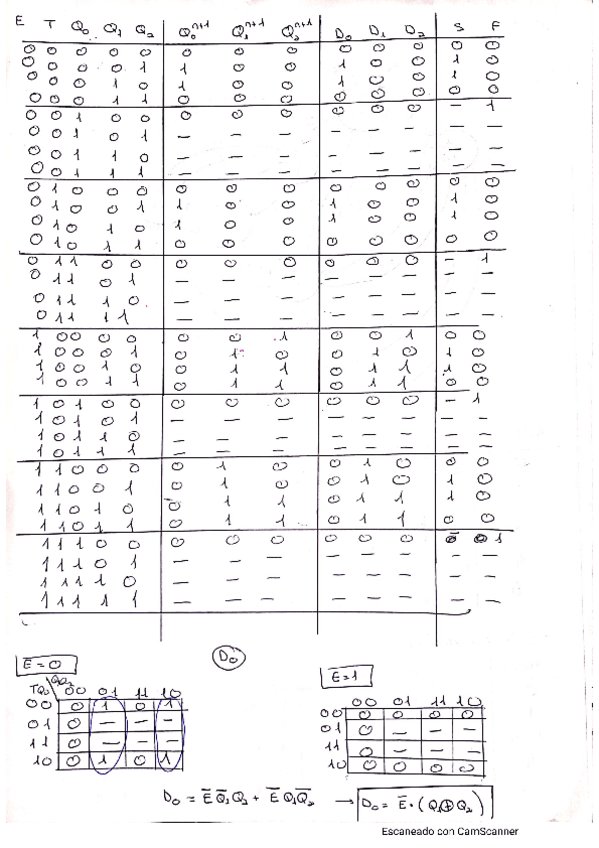 E T Q₀ Q₁ Q₂ Q₀ⁿ⁺¹ Q₁ⁿ⁺¹ Q₂ⁿ⁺¹ D₀ D₁ D₂ S F
0 0 0 0 0 0 0 0 0 0 0 0 0
0 0 0 0 1 1 0 0 1 0 0 1 0
0 0 0 1 0 1 0 0 1 0 0 1 0
0 0 0 1 1 0 0 0 0 0 0 0 0
0 0 1 0 0 0 0 0 0 0 0 – 1
0 0 1 0 1 – – – – – – – –
0 0 1 1 0 – – – – – – – –
0 0 1 1 1 – – – – – – – –
0 1 0 0 0 0 0 0 0 0 0 0 0
0 1 0 0 1 1 0 0 1 0 0 1 0
0 1 0 1 0 1 0 0 1 0 0 1 0
0 1 0 1 1 0 0 0 0 0 0 0 0
0 1 1 0 0 0 0 0 0 0 0 – 1
0 1 1 0 1 – – – – – – – –
0 1 1 1 0 – – – – – – – –
0 1 1 1 1 – – – – – – – –
1 0 0 0 0 0 0 1 0 0 1 0 0
1 0 0 0 1 0 1 0 0 1 0 1 0
1 0 0 1 0 0 1 1 0 1 1 1 0
1 0 0 1 1 0 1 1 0 1 1 0 0
1 0 1 0 0 0 0 0 0 0 0 – 1
1 0 1 0 1 – – – – – – – –
1 0 1 1 0 – – – – – – – –
1 0 1 1 1 – – – – – – – –
1 1 0 0 0 0 1 0 0 1 0 0 0
1 1 0 0 1 0 1 0 0 1 0 1 0
1 1 0 1 0 0 1 1 0 1 1 1 0
1 1 0 1 1 0 1 1 0 1 1 0 0
1 1 1 0 0 0 0 0 0 0 0 1
1 1 1 0 1 – – – – – – – –
1 1 1 1 0 – – – – – – – –
1 1 1 1 1 – – – – – – – –
E=0 D₀ E=1
TQ₀ Q₁Q₂ 00 01 11 10 00 01 11 10
00 0 1 0 1 00 0 0 0 0
01 0 – – – 01 0 – – –
11 0 – – – 11 0 – – –
10 0 1 0 1 10 0 0 0 0
D₀ = E̅ Q̅₁ Q₂ + E̅ Q₁ Q̅₂ → D₀ = E̅ · (Q₁ ⊕ Q₂)
Escaneado con CamScanner